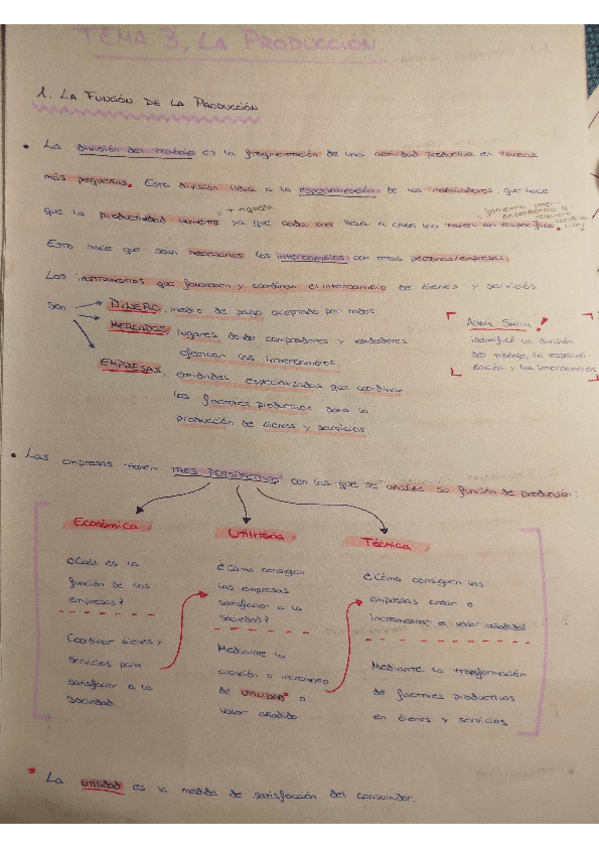 TEMA 3, LA PRODUCCIÓN
1. LA FUNCIÓN DE LA PRODUCCIÓN
• La división del trabajo es la fragmentación de una actividad productiva en tareas
más pequeñas. Esta división lleva a la especialización de los trabajadores, que hace
+ riqueza
que la productividad aumente ya que cada uno lleva a cabo una tarea en específico.
Esto hace que sean necesarios los intercambios con otras personas/empresas.
Los instrumentos que favorecen y coordinan el intercambio de bienes y servicios
son → DINERO, medio de pago aceptado por todos
MERCADOS, lugares donde compradores y vendedores
efectúan los intercambios.
EMPRESAS, entidades especializadas que coordinan
los factores productivos para la
producción de bienes y servicios
ADAM SMITH!
identificó la división
del trabajo, la especiali-
zación y los intercambios
• Las empresas tienen TRES PERSPECTIVAS con las que se analiza su función de producción:
Económica
¿Cuál es la
función de las
empresas?
Coordinar bienes y
servicios para
satisfacer a la
sociedad.
Utilitaria
¿Cómo consiguen
las empresas
satisfacer a la
sociedad?
Mediante la
creación o incremento
de UTILIDAD* o
valor añadido
Técnica
¿Cómo consiguen las
empresas crear o
incrementar el valor añadido?
Mediante la transformación
de factores productivos
en bienes y servicios
* La utilidad es la medida de satisfacción del consumidor.